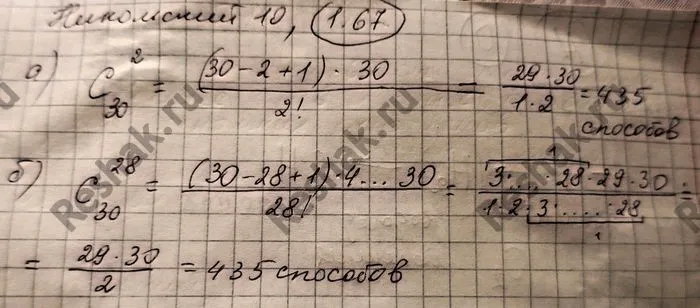 Никольский 10, 1.67
а) C₃₀² = (30-2+1)·30 / 2! = 29·30 / 1·2 = 435 способов
б) C₃₀²⁸ = (30-28+1)·4...30 / 28! = 3·...·28·29·30 / 1·2·3·...·28 =
= 29·30 / 2 = 435 способов
Reshak.ru